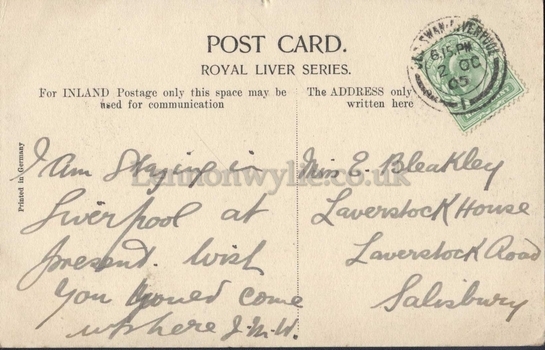 POST CARD.
ROYAL LIVER SERIES.
For INLAND Postage only this space may be
used for communication
The ADDRESS only
written here
Printed in Germany
OLD SWAN. LIVERPOOL
6.15 PM
2 OC
05
I Am Staying in
Liverpool at
present. Wish
you would come
here J.M.W.
Miss E. Bleakley
Laverstock House
Laverstock Road
Salisbury
Lennonwylie.co.uk